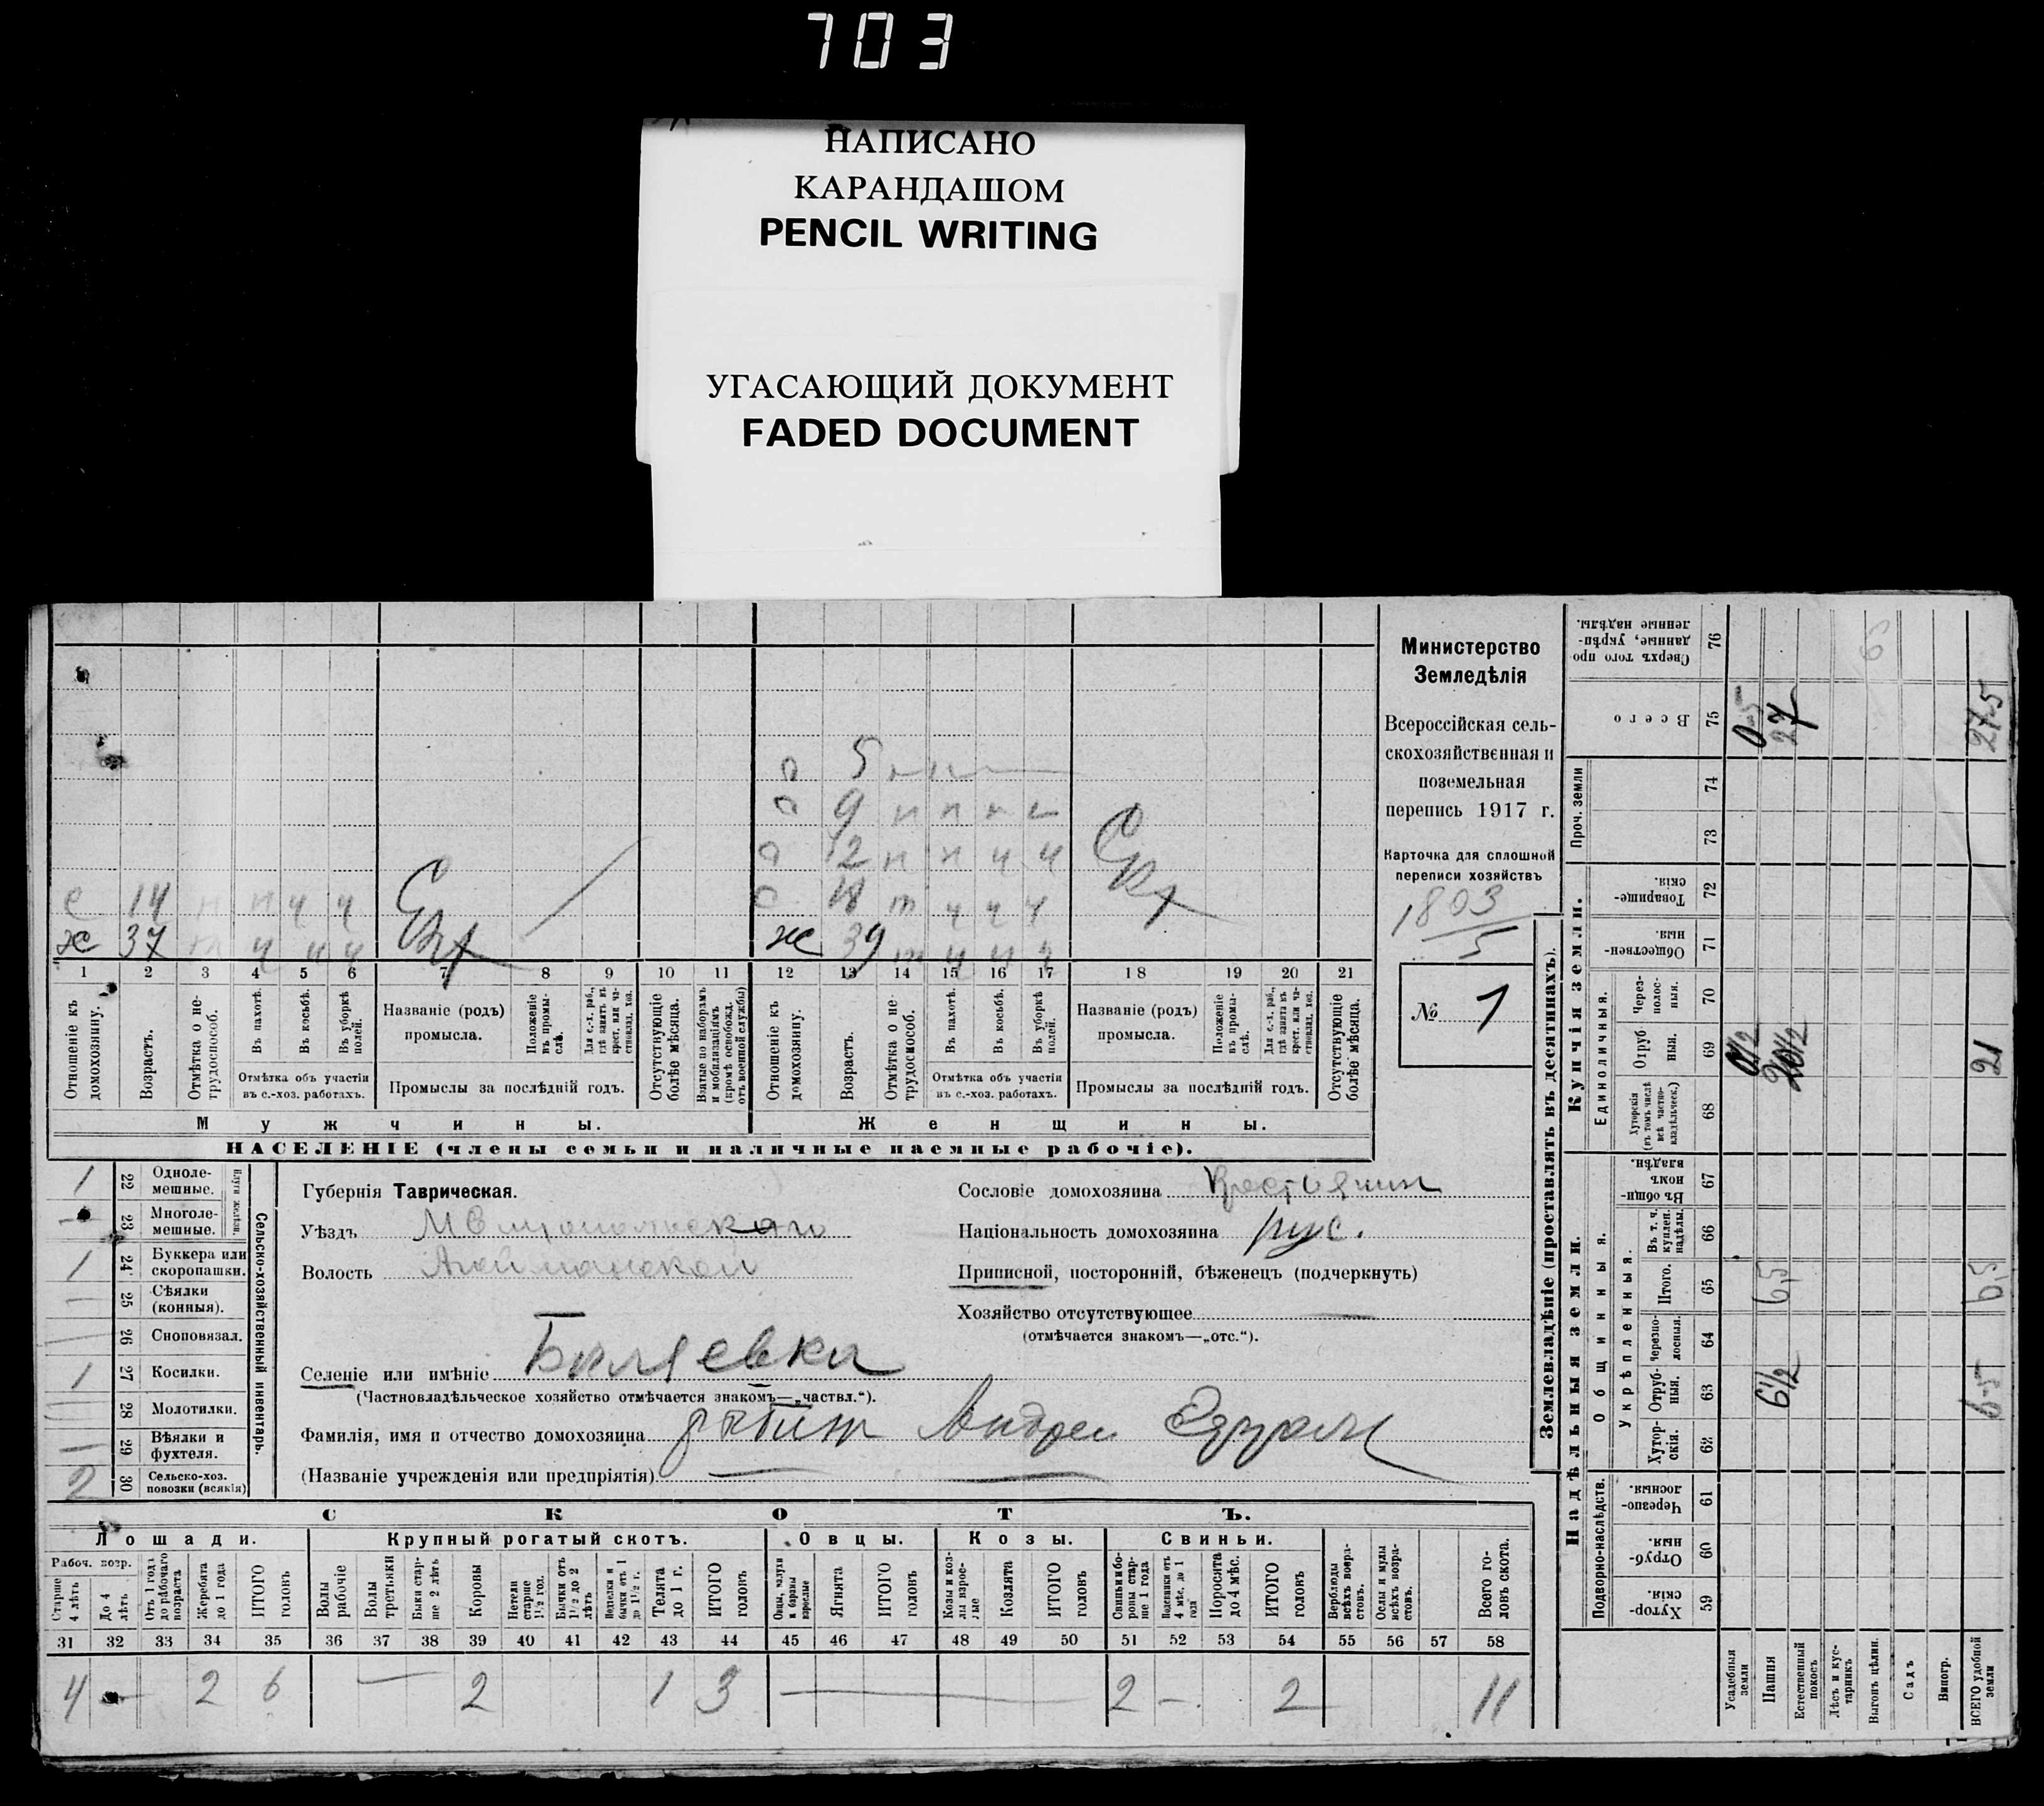 703
НАПИСАНО
КАРАНДАШОМ
PENCIL WRITING
УГАСАЮЩИЙ ДОКУМЕНТ
FADED DOCUMENT
о 5
о 9 н н н н
о 12 н н ч ч
с 14 н н ч ч
о 18 т ч ч ч
ж 37 т ч ч ч
ж 39 т ч ч ч
1 2 3 4 5 6 7 8 9 10 11 12 13 14 15 16 17 18 19 20 21
Отношеніе къ домохозяину.
Возрастъ.
Отмѣтка о не-трудоспособ.
Въ пахотѣ.
Въ косьбѣ.
Въ уборкѣ полей.
Отмѣтка объ участіи въ с.-хоз. работахъ.
Названіе (родъ) промысла.
Положеніе въ промы-слѣ.
Для с.-х. раб., гдѣ занятъ въ крест. или ча-стновлад. хоз.
Промыслы за послѣдній годъ.
Отсутствующіе болѣе мѣсяца.
Взятые по наборамъ и мобилизаціямъ (кромѣ освобожд. отъ военной службы)
Отношеніе къ домохозяину.
Возрастъ.
Отмѣтка о не-трудоспособ.
Въ пахотѣ.
Въ косьбѣ.
Въ уборкѣ полей.
Отмѣтка объ участіи въ с.-хоз. работахъ.
Названіе (родъ) промысла.
Положеніе въ промы-слѣ.
Для с.-х. раб., гдѣ занята въ крест. или ча-стновлад. хоз.
Промыслы за послѣдній годъ.
Отсутствующіе болѣе мѣсяца.
Мужчины. Женщины.
НАСЕЛЕНІЕ (члены семьи и наличные наемные рабочіе).
Министерство
Земледѣлія
Всероссійская сель-
скохозяйственная и
поземельная
перепись 1917 г.
Карточка для сплошной
переписи хозяйствъ
1803
5
№ 1
1 22 Одноле-мешные.
23 Многоле-мешные.
Плуги желѣзн.
1 24 Буккера или скоропашки.
25 Сѣялки (конныя).
26 Сноповязал.
1 27 Косилки.
28 Молотилки.
29 Вѣялки и фухтеля.
2 30 Сельско-хоз. повозки (всякія)
Сельско-хозяйственный инвентарь.
Губернія Таврическая.
Уѣздъ Мелитопольскаго
Волость Агайманской
Селеніе или имѣніе
(Частновладѣльческое хозяйство отмѣчается знакомъ—„частвл.“).
Фамилія, имя и отчество домохозяина Андрей
(Названіе учрежденія или предпріятія)
Сословіе домохозяина Крестьянин
Національность домохозяина рус.
Приписной, посторонній, бѣженец (подчеркнуть)
Хозяйство отсутствующее
(отмѣчается знакомъ—„отс.“).
СКОТЪ.
Лошади. Крупный рогатый скотъ. Овцы. Козы. Свиньи.
Рабоч. возр.
Старше 4 лѣтъ
До 4 лѣтъ.
Отъ 1 года до рабочаго возраста
Жеребята до 1 года
ИТОГО головъ
Волы рабочіе
Волы третьяки
Быки стар-ше 2 лѣтъ
Коровы
Нетели старше 1½ год.
Бычки отъ 1½ до 2 лѣтъ
Неделки и бычки отъ 1 до 1½ г.
Телята до 1 г.
ИТОГО головъ
Овцы, валухи и бараны взрослые
Ягнята
ИТОГО головъ
Козы и коз-лы взрос-лые
Козлята
ИТОГО головъ
Свиньи бо-ровы стар-ше 1 года
Подсвинки отъ 4 мѣс. до 1 года
Поросята до 4 мѣс.
ИТОГО головъ
Верблюды всѣхъ возра-стовъ.
Ослы и мулы всѣхъ возра-стовъ.
Всего го-ловъ скота.
31 32 33 34 35 36 37 38 39 40 41 42 43 44 45 46 47 48 49 50 51 52 53 54 55 56 57 58
4 — 2 6 — 2 1 3 — 2 — 2 11
Землевладѣніе (проставлять въ десятинахъ).
Надѣльныя земли. Купчія земли.
Подворно-наслѣдств.
Общинныя.
Укрѣпленныя.
Единоличныя.
Проч. земли
Хутор-скія. 59
Отруб-ныя 60
Черезпо-лосныя. 61
Хутор-скія. 62
Отруб-ныя. 63
Черезпо-лосныя. 64
Итого. 65
Въ т. ч. куплен. надѣлы. 66
Въ общин-номъ владѣн. 67
Хуторскія (въ томъ числѣ всѣ частно-владѣльческ.) 68
Отруб ныя. 69
Через-полос-ныя. 70
Обществен-ныя. 71
Товарище-скія. 72
73
74
Всего 75
Сверхъ того про данные, укрѣп-ленные надѣлы. 76
Усадебныя земли 0½ 0-5
Пашня 6½ 6,5 20½ 27
Естественный покосъ
Лѣсъ и кус-тарникъ
Выгонъ цѣлин. 6
Садъ
Виногр.
ВСЕГО удобной земли 6-5 6,5 21 27-5